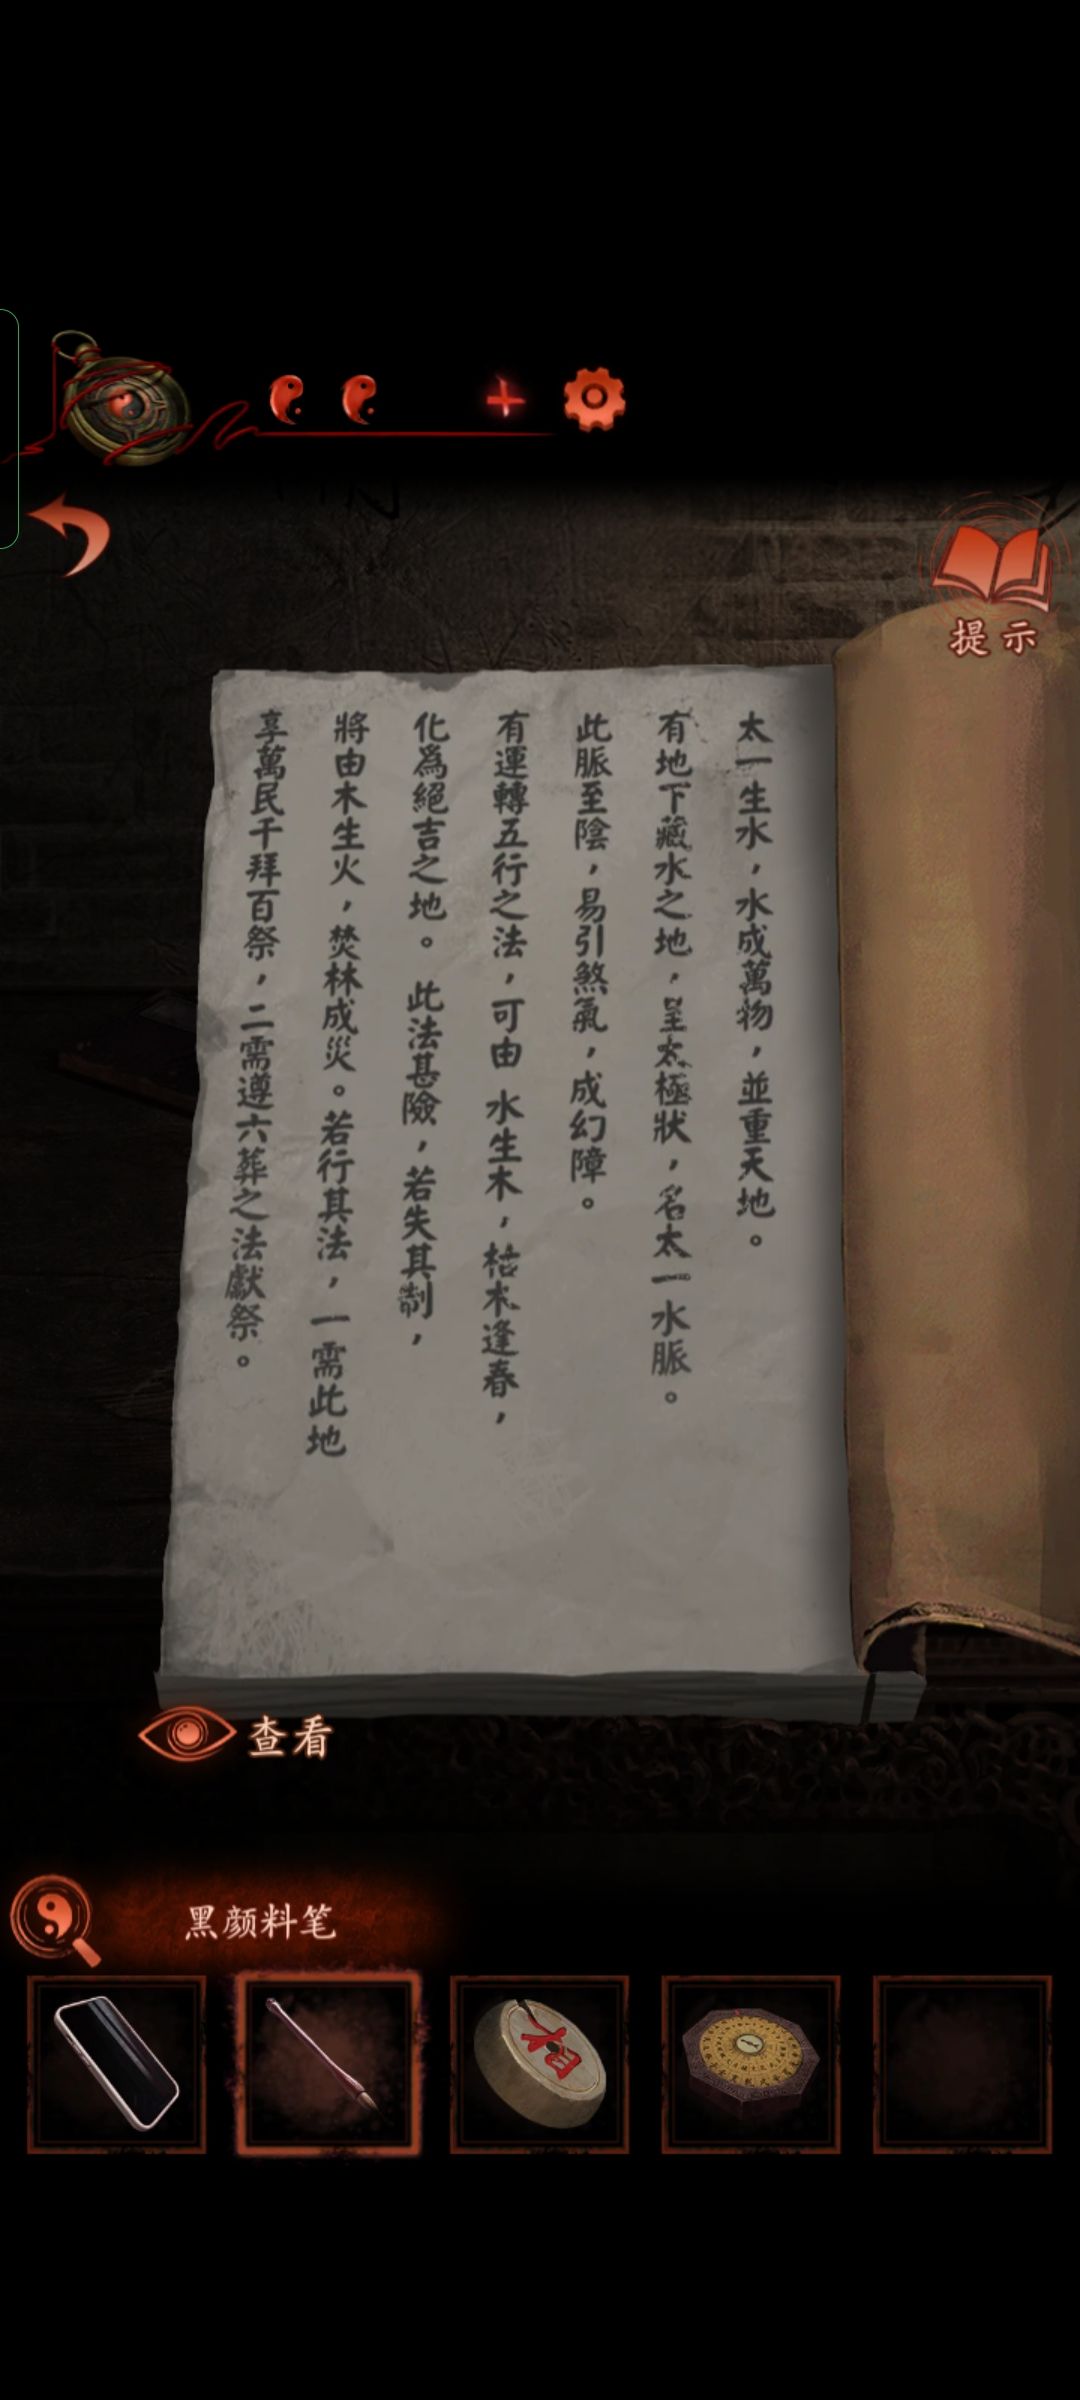 提示
太一生水，水成萬物，並重天地。
有地下藏水之地，呈太極狀，名太一水脈。
此脈至陰，易引煞氣，成幻障。
有運轉五行之法，可由 水生木，枯木逢春，
化為絕吉之地。此法甚險，若失其制，
將由木生火，焚林成災。若行其法，一需此地
享萬民千拜百祭，二需遵六葬之法獻祭。
查看
黑颜料笔